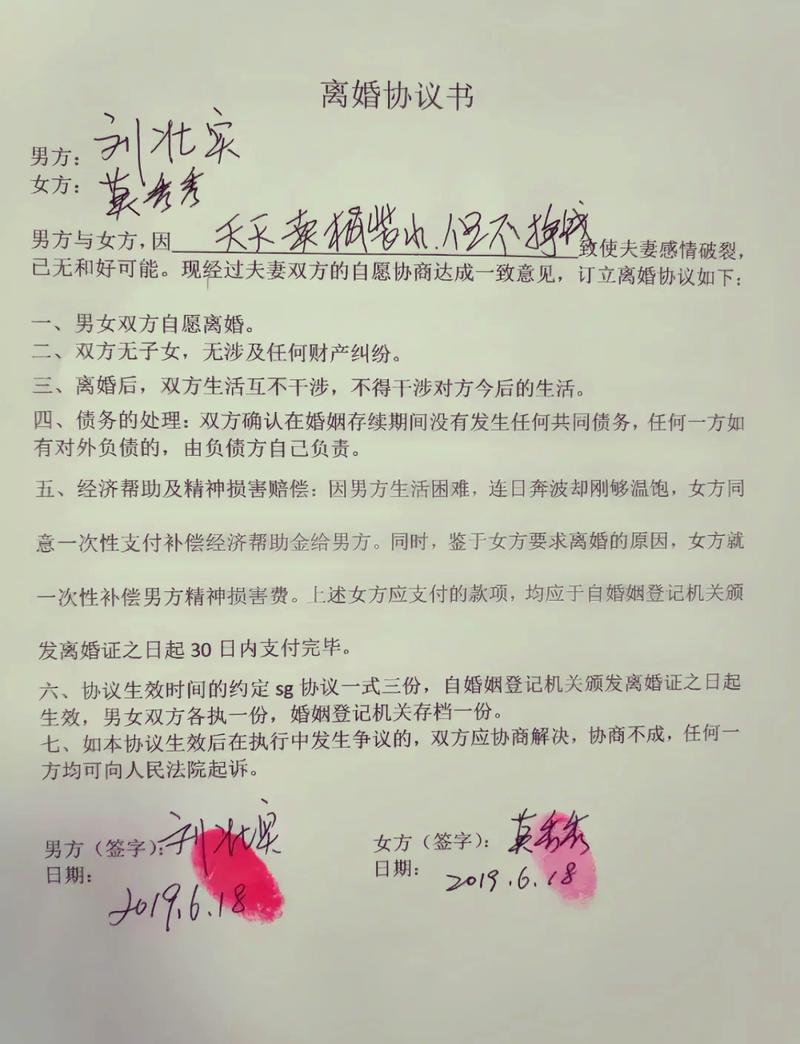 离婚协议书
男方：刘壮实
女方：莫秀秀
男方与女方，因天天卖桶装水.但不挣钱致使夫妻感情破裂，
已无和好可能。现经过夫妻双方的自愿协商达成一致意见，订立离婚协议如下：
一、男女双方自愿离婚。
二、双方无子女，无涉及任何财产纠纷。
三、离婚后，双方生活互不干涉，不得干涉对方今后的生活。
四、债务的处理：双方确认在婚姻存续期间没有发生任何共同债务，任何一方如
有对外负债的，由负债方自己负责。
五、经济帮助及精神损害赔偿：因男方生活困难，连日奔波却刚够温饱，女方同
意一次性支付补偿经济帮助金给男方。同时，鉴于女方要求离婚的原因，女方就
一次性补偿男方精神损害费。上述女方应支付的款项，均应于自婚姻登记机关颁
发离婚证之日起 30 日内支付完毕。
六、协议生效时间的约定 sg 协议一式三份，自婚姻登记机关颁发离婚证之日起
生效，男女双方各执一份，婚姻登记机关存档一份。
七、如本协议生效后在执行中发生争议的，双方应协商解决，协商不成，任何一
方均可向人民法院起诉。
男方（签字）：刘壮实
日期：2019.6.18
女方（签字）：莫秀秀
日期：2019.6.18